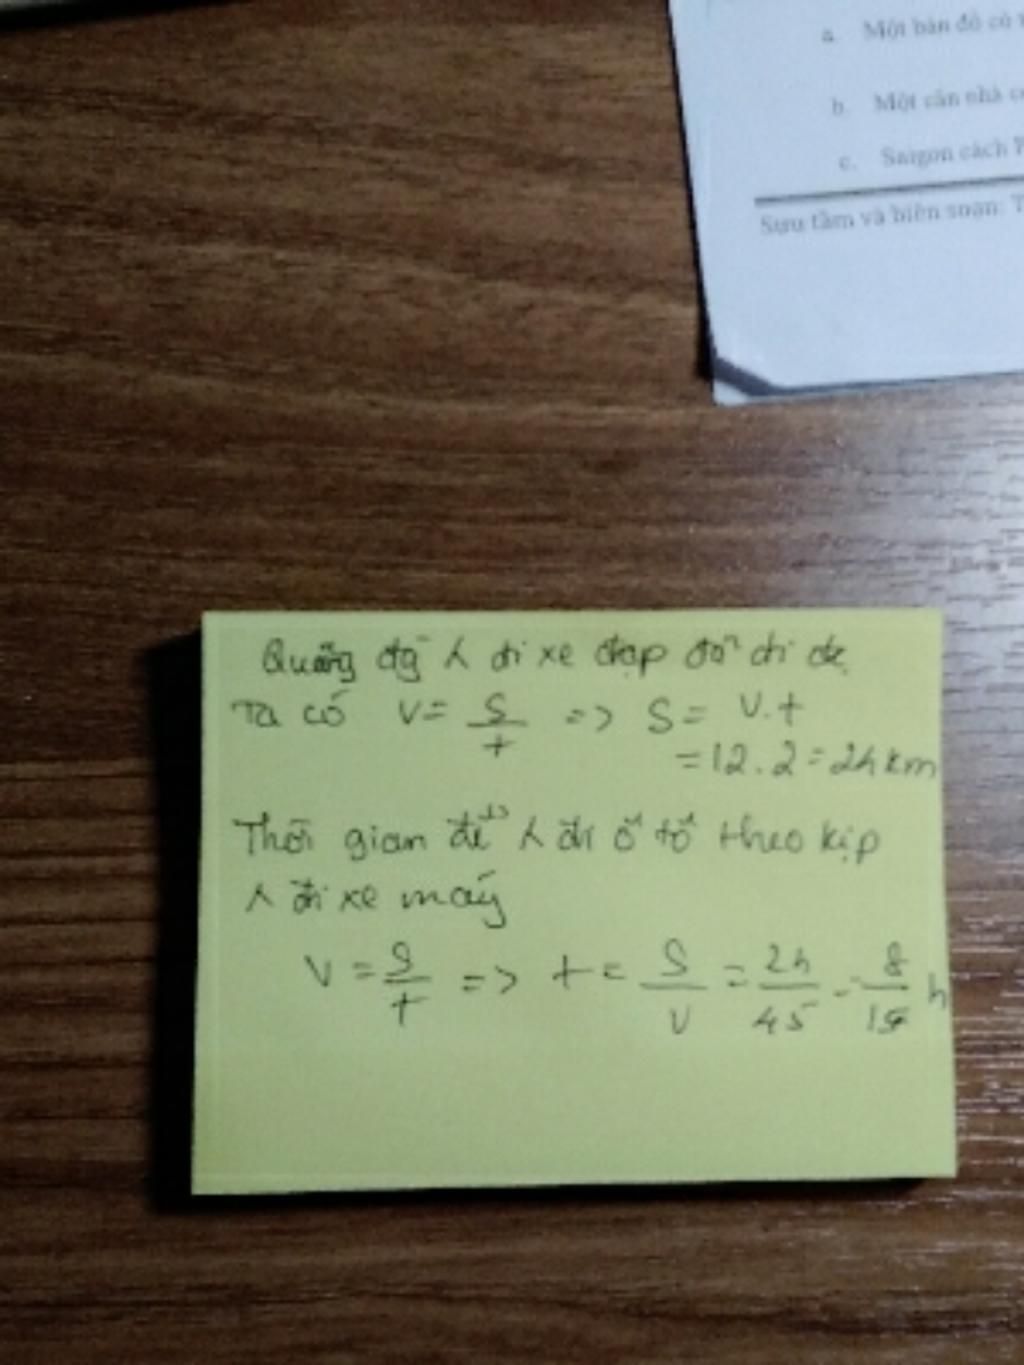 a. Một bản đồ có
b. Một căn nhà
c. Saigon cách
Sưu tầm và biên soạn: T
Quãng đg λ đi xe đạp đã đi đc
Ta có v = S/t => S = v.t
= 12.2 = 24 km
Thời gian để λ đi ô tô theo kịp
λ đi xe máy
v = S/t => t = S/v = 24/45 = 8/15 h